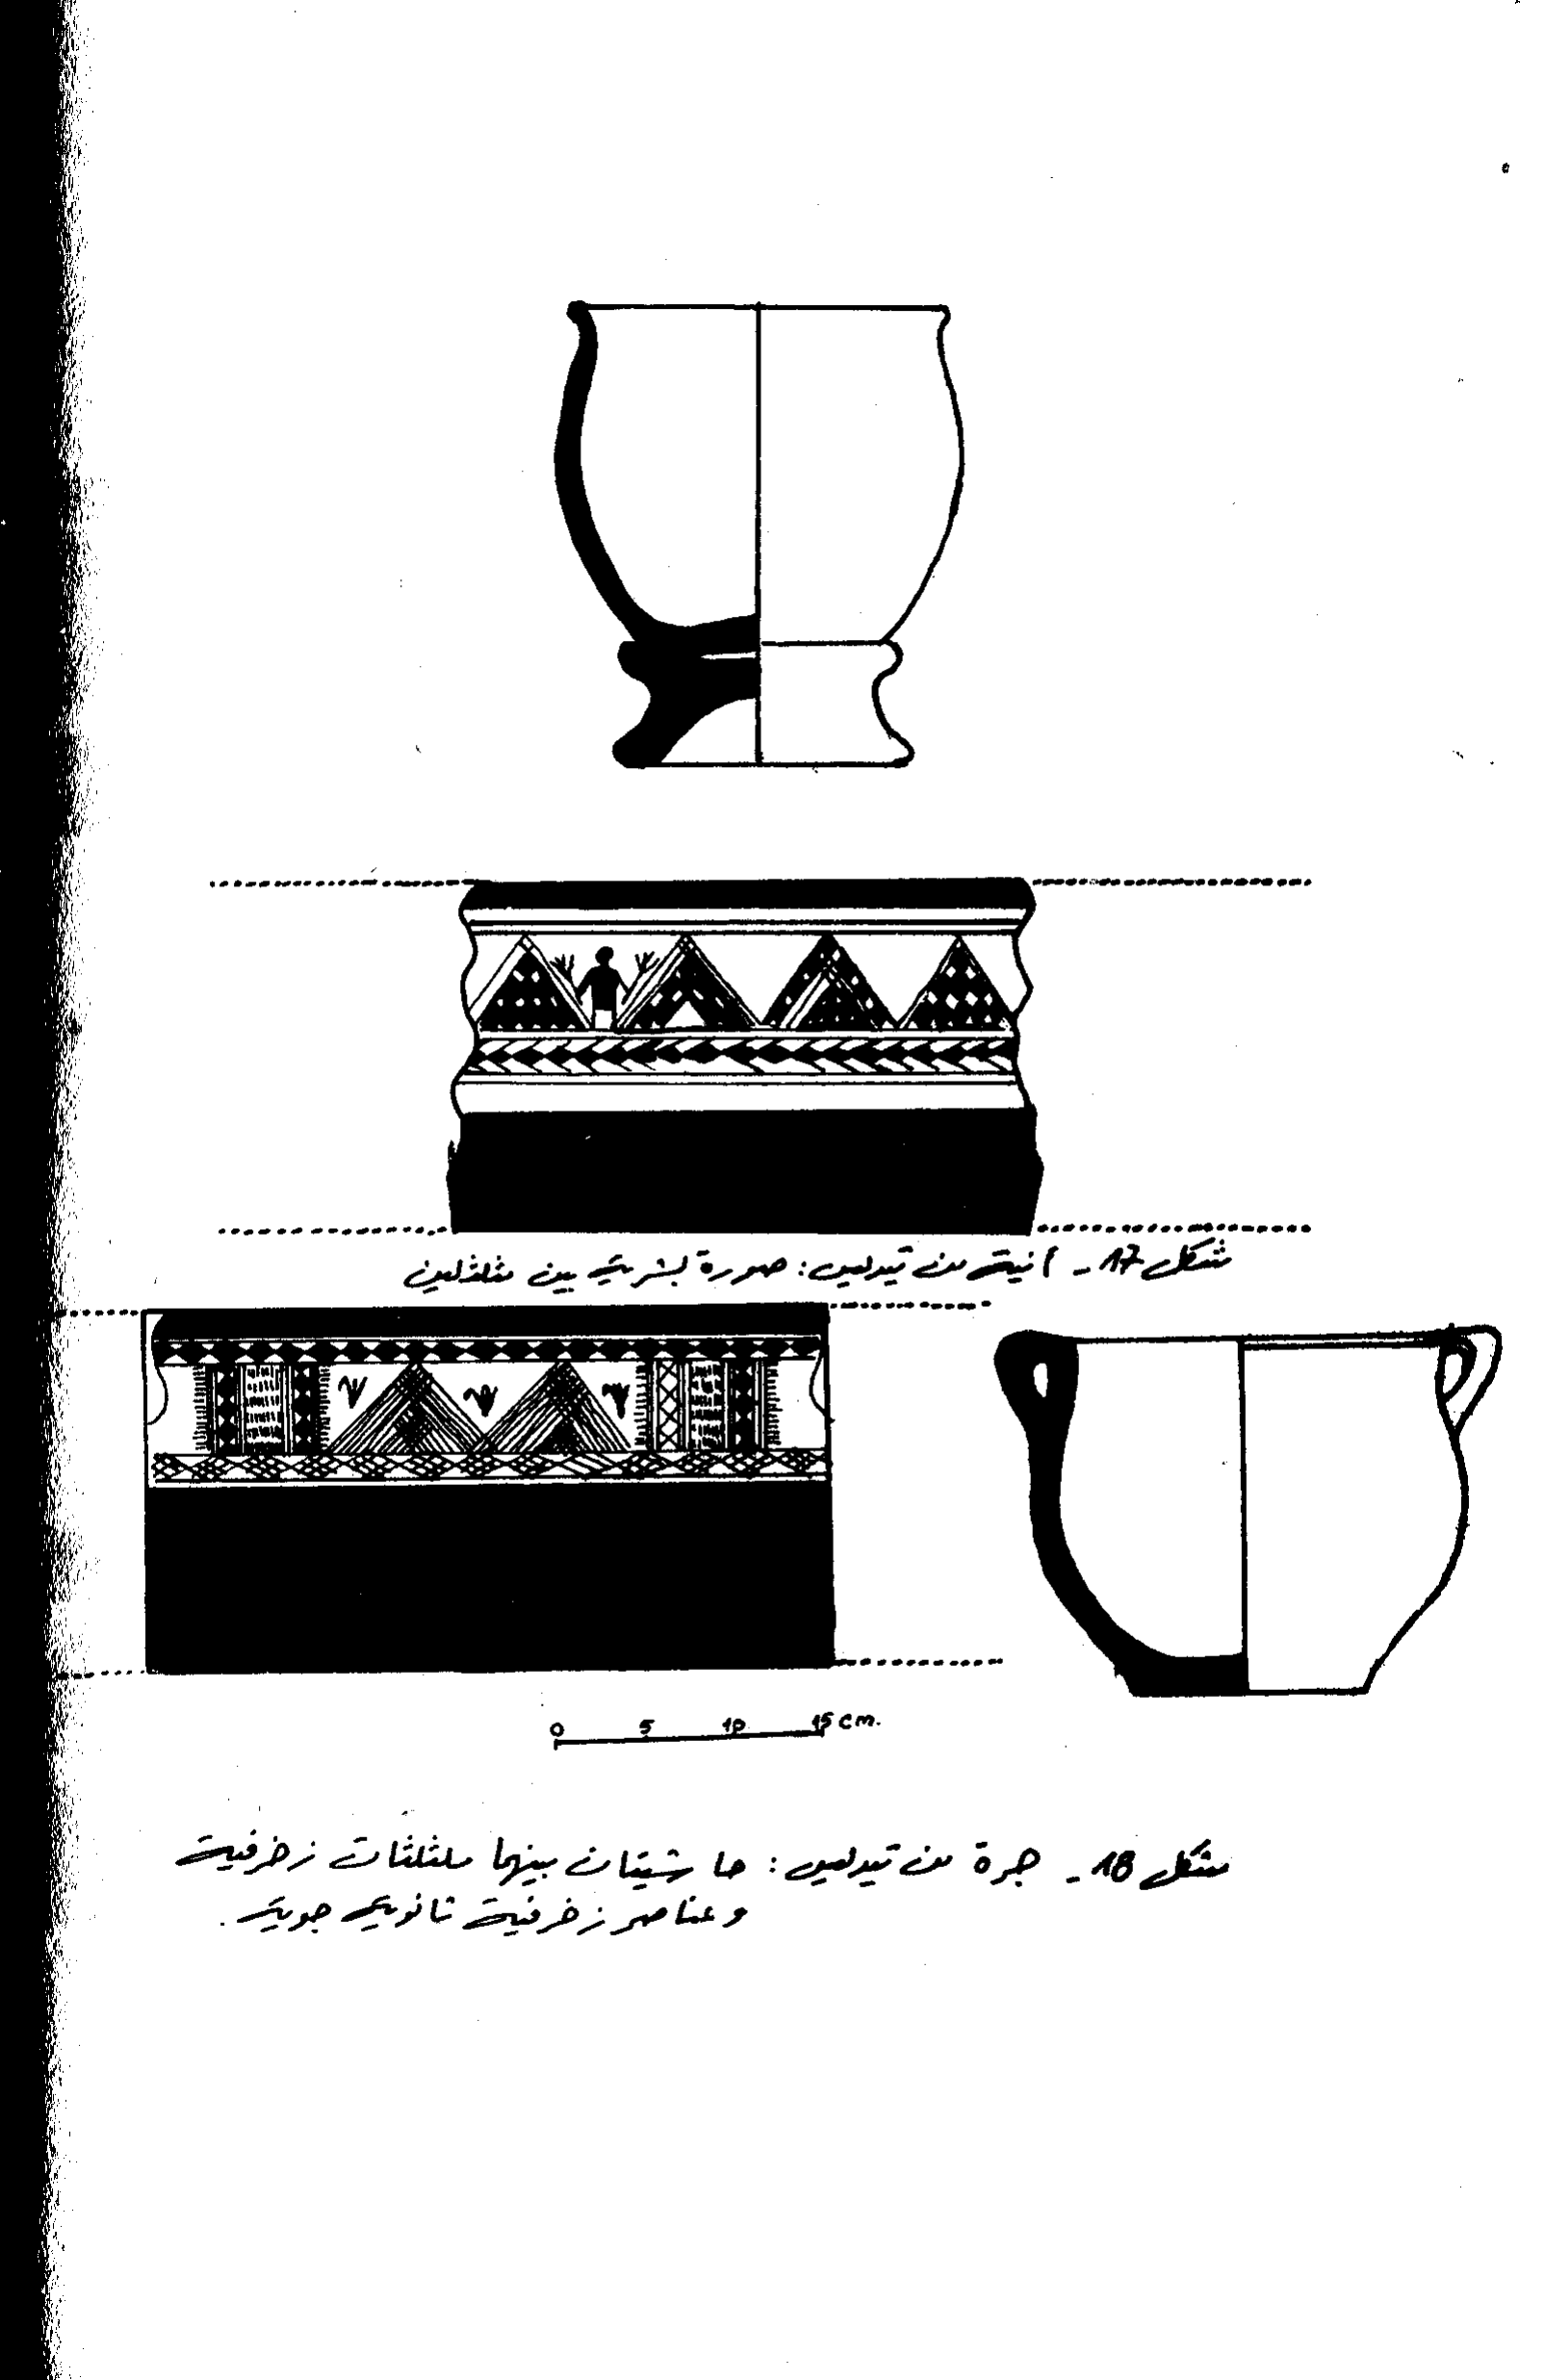 شكل 17 - آنية من تيديس : صورة بشرية بين مثلثين
0 5 10 15 cm.
شكل 18 - جرة من تيديس : حاشيتان بينهما مثلثات زخرفية
وعناصر زخرفية ثانوية جوية .